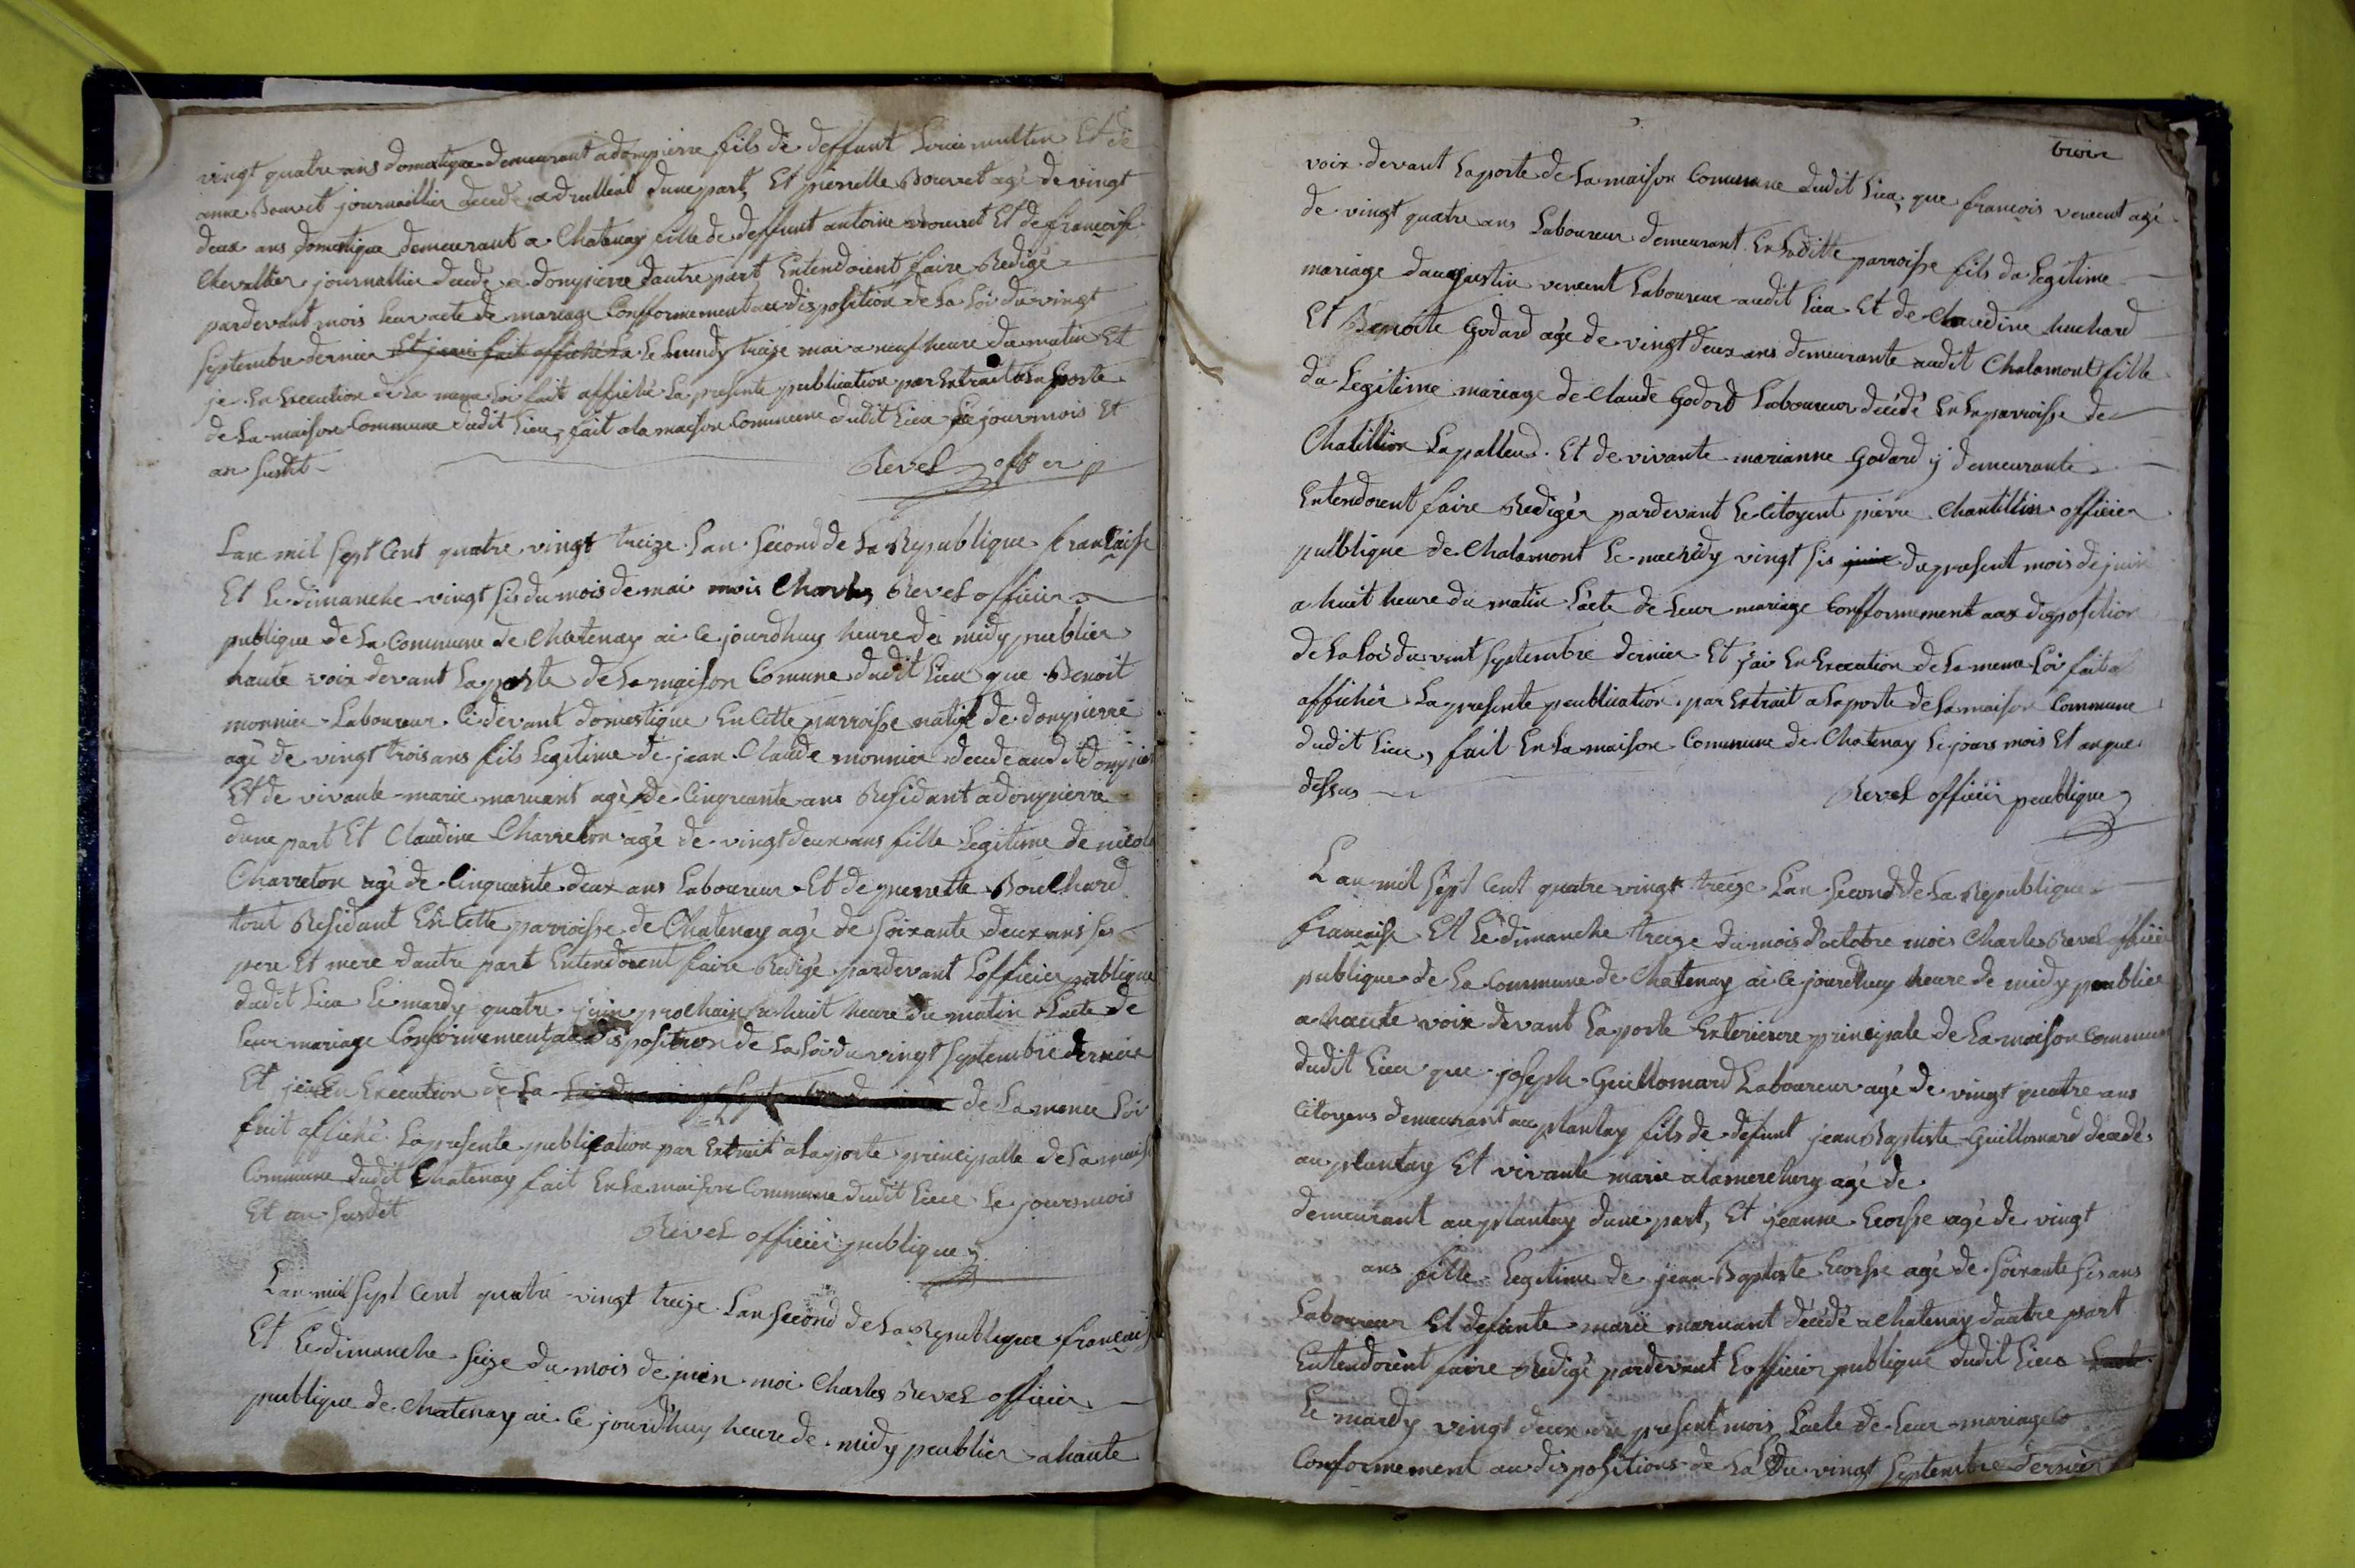 vingt quatre ans domestique demeurant a dompierre fils de deffunt Louis multin Et de
anne Bouvet journallier decedé a druilliat dune part, Et pierrette Bouvet agé de vingt
deux ans domestique demeurant a Chatenay fille de deffunt antoine Bouvet Et de francoise
Chevallier journallier decedé a dompierre dautre part Entendoient faire Redigé
pardevant mois leur acte de mariage Confformement au disposition de La Loi du vingt
Septembre dernier Et jeai fait affiché La Le Lundy treize mai a neuf heure du matin Et
je En Execution de La meme Loi fait affiché La presente publication par Extrait a La porte
de La maison Commune dudit Lieu, fait a la maison Commune dudit Lieu Le jour mois Et
an Susdit
Revel off er p
Lan mil Sept Cent quatre vingt treize Lan Second de La Republique francaise
Et Le dimanche vingt sis du mois de mai mois Charles Revel officier
publique de La Commune de Chatenay ai Ce jourdhuy heure de midy publier
haute voix devant La porte de La maison Comune dudit Lieu que Benoit
monnier Laboureur Cidevant domestique En Cette parroisse natif de dompierre
agé de vingt trois ans fils Legitime de jean Claude monnier decedé audit dompier
Et de vivante marie marnant agé de Cinquante ans Residant a dompierre
dune part Et Claudine Charreton agé de vingt deux ans fille Legitime de nicola
Charreton agé de Cinquante deux ans Laboureur Et de pierrette Boulhard
tout Residant En Cette parroisse de Chatenay agé de Soixante deux ans Ses
pere Et mere dautre part Entendoient faire Redigé pardevant Lofficier publique
dudit Lieu Le mardy quatre juin prochain a huit heure du matin Lacte de
Leur mariage Conformement au disposition de La Loi du vingt Septembre dernier
Et jeai En Execution de La Loi du vingt Septembre dernier de La meme Loi
fait affiché La presente publication par Extrait a La porte principalle de La maiso
Commune dudit Chatenay fait En La maison Commune dudit Lieu Le jours mois
Et an Susdit
Revel officier publique
Lan mil Sept Cent quatre vingt treize Lan Second de La Republique francais
Et Le dimanche Seize du mois de juin moi Charles Revel officier
publique de Chatenay ai Ce jourdhuy heure de midy publier a haute
trois
voix devant La porte de La maison Commune dudit Lieu, que francois venent agé
de vingt quatre ans Laboureur demeurant En Laditte parroisse fils du Legitime
mariage daugustin venent Laboureur audit Lieu Et de Claudine huchard
Et Benoite Godard agé de vingt deux ans demeurante audit Chalamont fille
du Legitime mariage de Claude Godard Laboureur décédé En La parroisse de
Chatillion Lapallud. Et de vivante marianne Godard y demeurante
Entendoient faire Rediger pardevant Le Citoyent pierre Chantillin officier
publique de Chalamont Le mecredy vingt sis juin du present mois de juin
a huit heure du matin Lacte de Leur mariage Confformement aux disposition
de La Loi du vint Septembre dernier Et jai En Execution de La meme Loi fait a
afficher La presente publication par Extrait a La porte de La maison Commune
dudit Lieu, fait En La maison Commune de Chatenay Le jours mois Et an que
dessus
Revel officier publique
Lan mil Sept Cent quatre vingt treize Lan Second de La Republique
francaise Et Le dimanche treize du mois doctobre mois Charles Revel officier
publique de La Commune de Chatenay ai Ce jourdhuy heure de midy publier
a haute voix devant La porte Exterieure principale de La maison Commune
dudit Lieu que joseph Guillomard Laboureur agé de vingt quatre ans
Citoyens demeurant au plantay fils de defunt jean Baptiste Guillomard decedé
au plantay Et vivante marie alamerchery agé de
demeurant au plantay dune part, Et jeanne Ecosse agé de vingt
ans fille Legitime de jean Baptiste Ecosse agé de Soixante sis ans
Laboureur Et defunte marie marnant décédé a Chatenay dautre part
Entendoient faire Redigé pardevant Lofficier publique dudit Lieu Lacte
Le mardy vingt deux du present mois Lacte de Leur mariage
Conformement au dispositions de La du vingt Septembre dernier